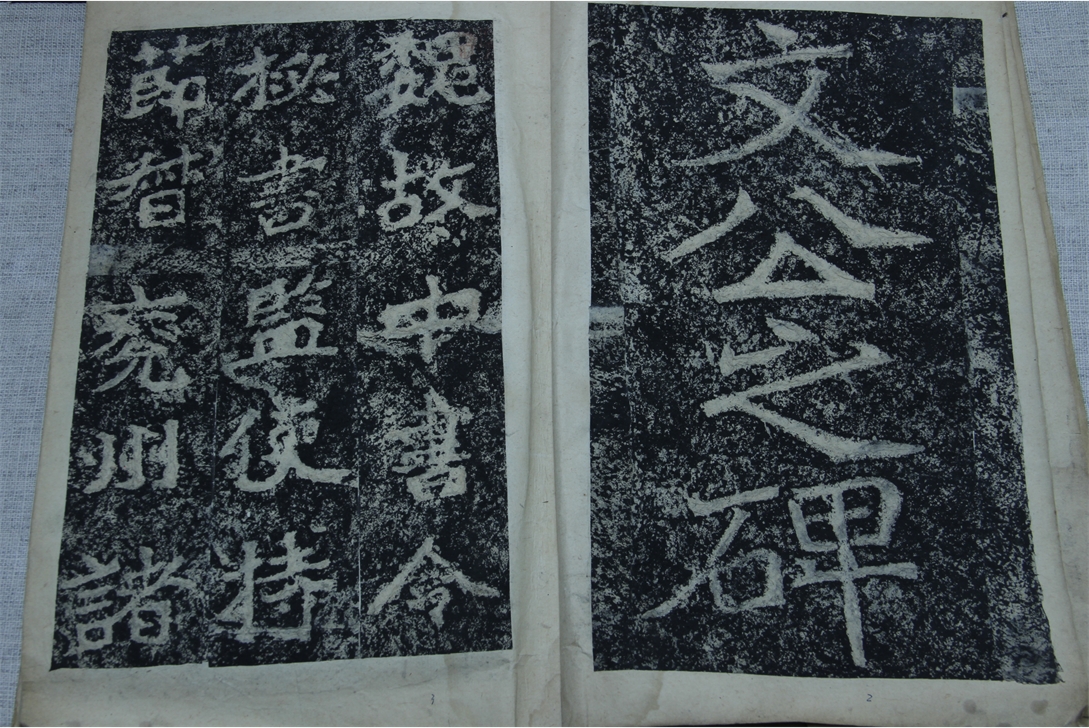 文公之碑
2
魏故中書令
秘書監使持
節督兗州諸
3